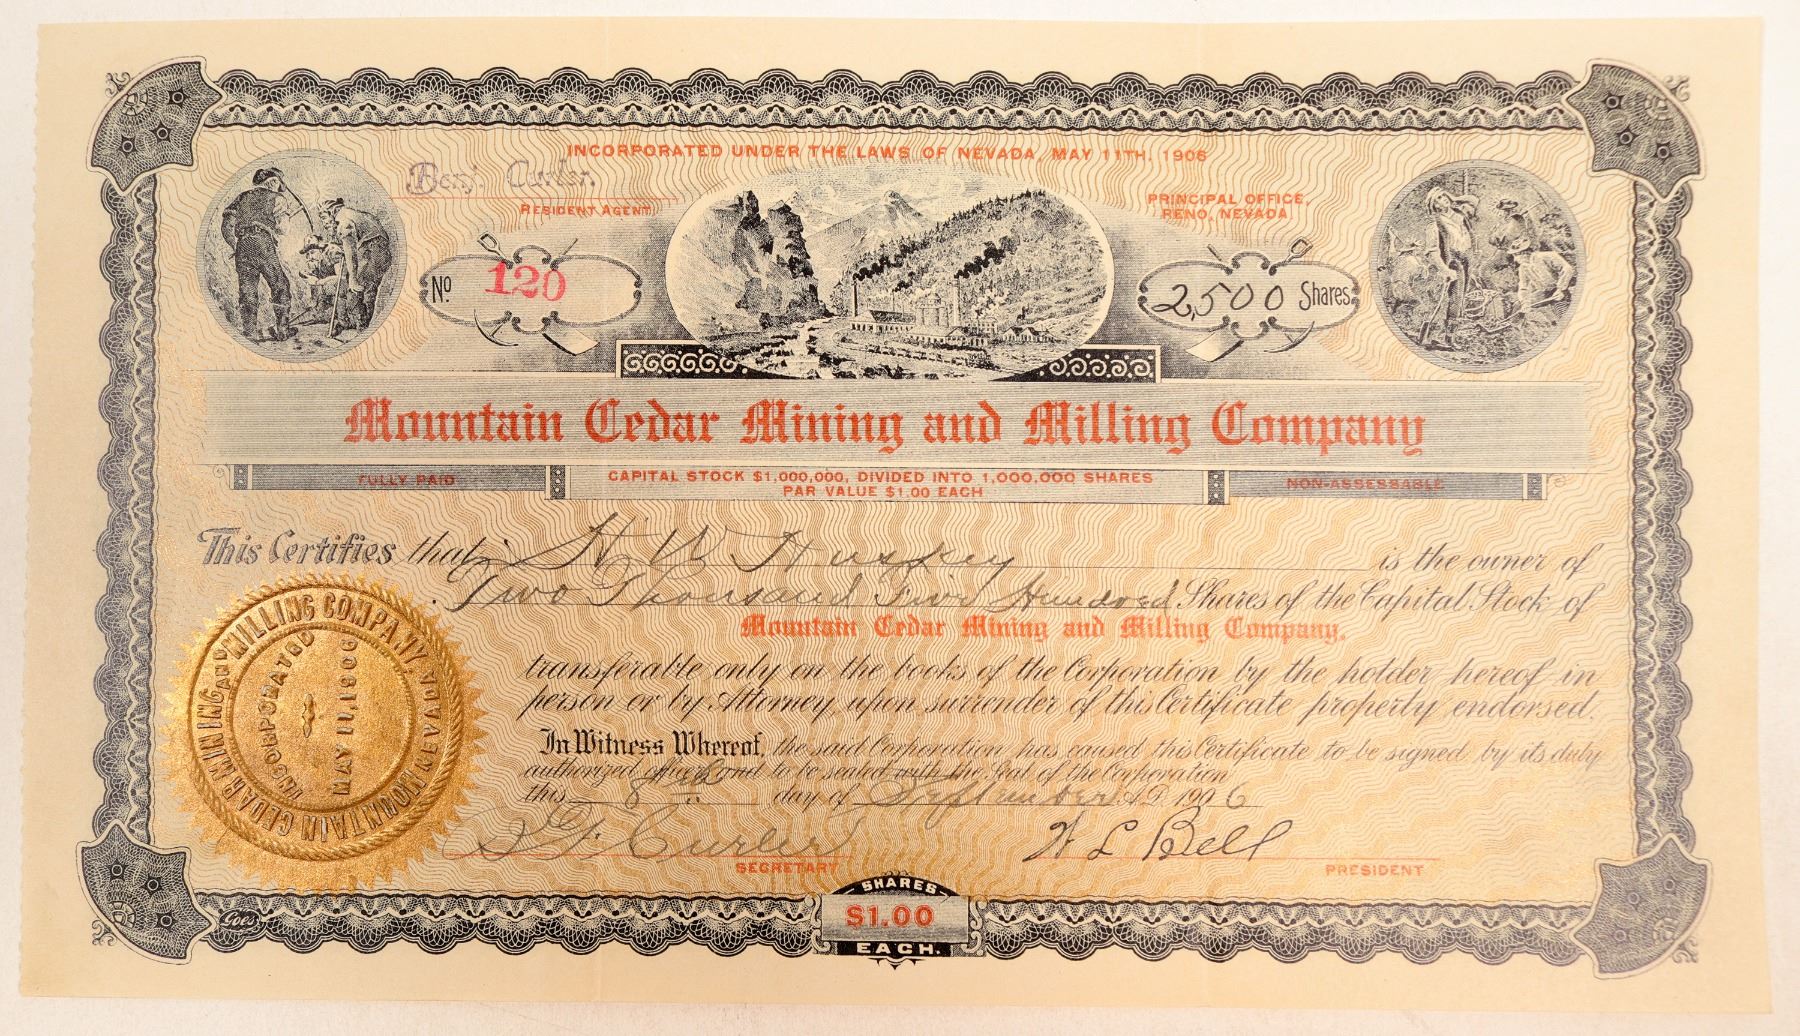 INCORPORATED UNDER THE LAWS OF NEVADA, MAY 11TH, 1906
Benj. Curler.
RESIDENT AGENT
PRINCIPAL OFFICE,
RENO, NEVADA
No 120
2,500 Shares
Mountain Cedar Mining and Milling Company
FULLY PAID
CAPITAL STOCK $1,000,000, DIVIDED INTO 1,000,000 SHARES
PAR VALUE $1.00 EACH
NON-ASSESSABLE
This Certifies that H W Huskey is the owner of
Two Thousand Five Hundred Shares of the Capital Stock of
Mountain Cedar Mining and Milling Company,
transferable only on the books of the Corporation by the holder hereof in
person or by Attorney, upon surrender of this Certificate properly endorsed.
In Witness Whereof, the said Corporation has caused this Certificate to be signed by its duly
authorized officers and to be sealed with the Seal of the Corporation
this 8th day of September A.D. 1906
MOUNTAIN CEDAR MINING AND MILLING COMPANY, NEVADA
INCORPORATED
MAY 11, 1906
Curler
SECRETARY
H L Bell
PRESIDENT
Goes
SHARES
$1.00
EACH.